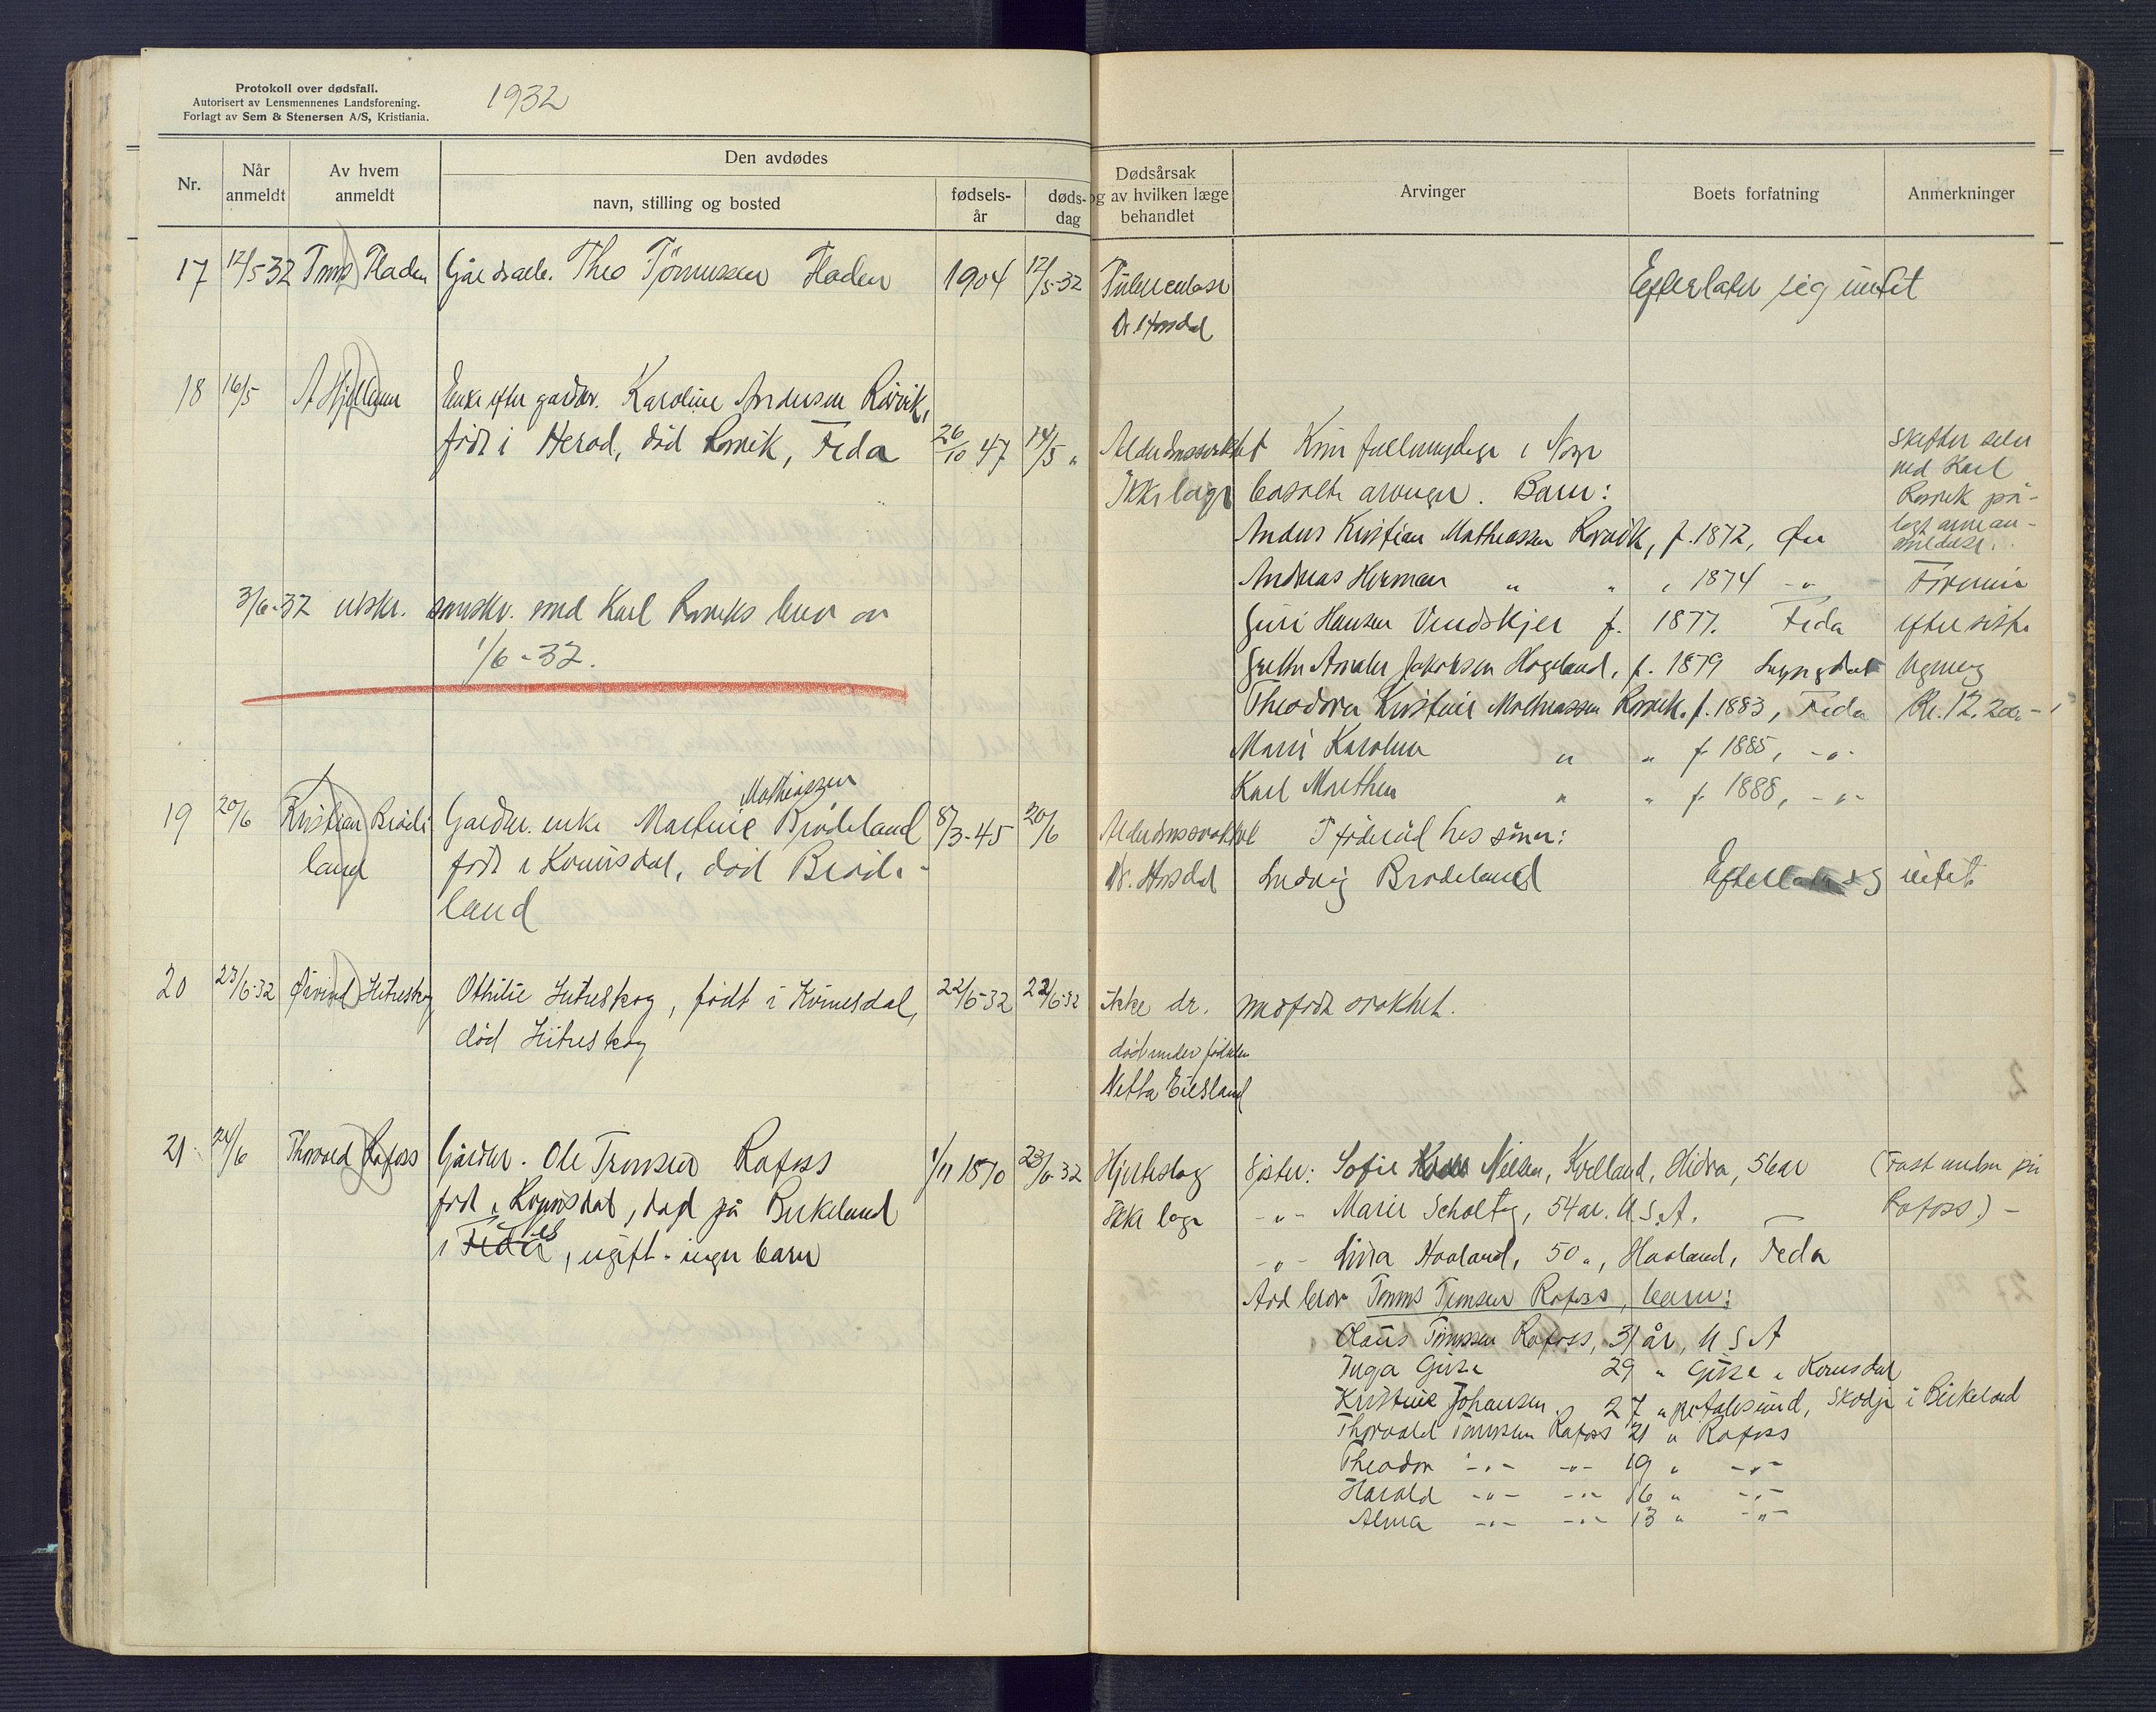 Protokoll over dødsfall.
Autorisert av Lensmennenes Landsforening.
Forlagt av Sem & Stenersen A/S, Kristiania.
1932
Nr.
Når anmeldt
Av hvem anmeldt
Den avdødes
navn, stilling og bosted
fødsels-år
døds-dag
Dødsårsak og av hvilken læge behandlet
Arvinger
Boets forfatning
Anmerkninger
17 12/5-32 Fladen Gårdsarb. Theo Tønnessen Fladen 1904 12/5-32 Tuberculose Efterlater sig intet
Dr. Hosdal
18 16/5 A Hjelland Enke efter gårdbr. Karoline Andersen Rørvik,
født i Herad, død Rørvik, Feda 26/10 47 14/5 " Alderdomssvakhet Kun fullmyndige i Norge
Ikke læge bosatte arvinger. Barn:
skifter selv
ved Karl
Rørvik på-
lagt arvean-
meldelse.
Anders Kristian Mathiassen Rørvik, f. 1872,
Andreas Herman " " , 1874 - " - Formue
Guri Hansen Vindskjer f. 1877. Feda efter siste
Jakobsen Hogeland, f. 1879 Lyngdal ligning
Theodora Kristine Mathiassen Rørvik. f. 1883, Feda Kr. 12.200 -
Marie Karoline " " f 1885, - " -
Karl Marthin " " f. 1888, - " -
3/6-32 utskr. svarskr. med Karl Rørviks brev av
1/6-32.
19 20/6 Kristian Brøde-
land
Gårdbr. enke Martine Mathiassen Brødeland 8/3-45 20/6 Alderdomssvakhet I føderåd hos sønn:
født i Kvinesdal, død Brøde- Dr. Hosdal Ludvig Brødeland Efterlater sig intet
land
20 23/6-32 Øivind Litleskog Othilie Litleskog, født i Kvinesdal, 22/6-32 22/6-32 ikke dr. medfødt svakhet.
død Litleskog død under fødselen
Netta Eiesland
21 24/6 Thorvald Rafoss Gårdbr. Ole Tønnsen Rafoss 1/11 1870 23/6-32 Hjerteslag Søster: Sofie Nilsen, Kvelland, Hidra, 56 år (Fast eiendom på
født i Kvinesdal, død på Birkeland Ikke læge - " - Marie Scholtz, 54 år. U.S.A. Rafoss) -
i Feda, ugift - ingen barn - " - Lina Haaland, 50 ", Haaland, Feda
Død bror Tønnes Tønnsen Rafoss, barn:
Olaus Tønnsen Rafoss, 31 år, U S A
Inga Gjise 29 " Gjise i Kvinesdal
Kristine Johansen 27 " pr Aalesund, Skodje i Birkeland
Thorvald Tønnsen Rafoss 21 " Rafoss
Theodor - " - - " - 19 " - " -
Harald - " - - " - 16 " - " -
Alma - " - - " - 13 " - " -